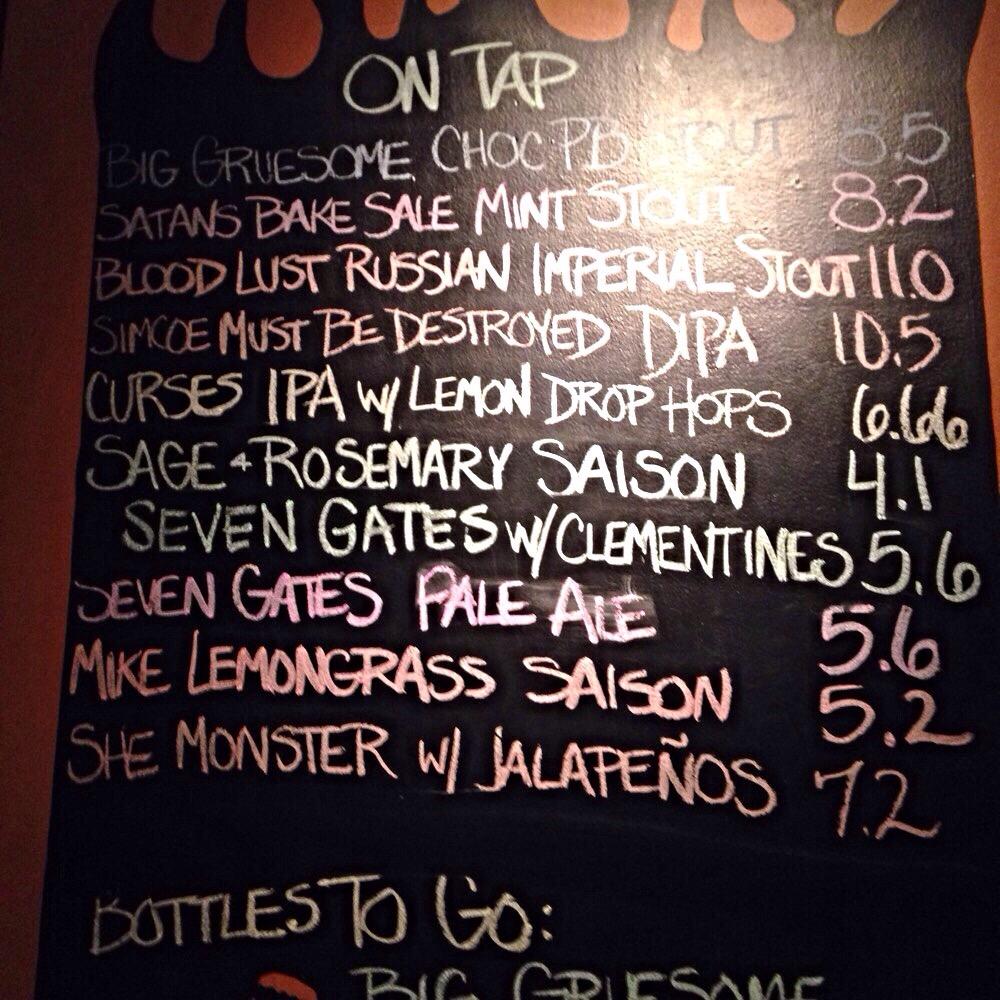 ON TAP
BIG GRUESOME CHOC PB STOUT 8.5
SATANS BAKE SALE MINT STOUT 8.2
BLOOD LUST RUSSIAN IMPERIAL STOUT 11.0
SIMCOE MUST BE DESTROYED DIPA 10.5
CURSES IPA W/ LEMON DROP HOPS 6.66
SAGE + ROSEMARY SAISON 4.1
SEVEN GATES W/ CLEMENTINES 5.6
SEVEN GATES PALE ALE 5.6
MIKE LEMONGRASS SAISON 5.2
SHE MONSTER W/ JALAPEÑOS 7.2
BOTTLES TO GO:
BIG GRUESOME